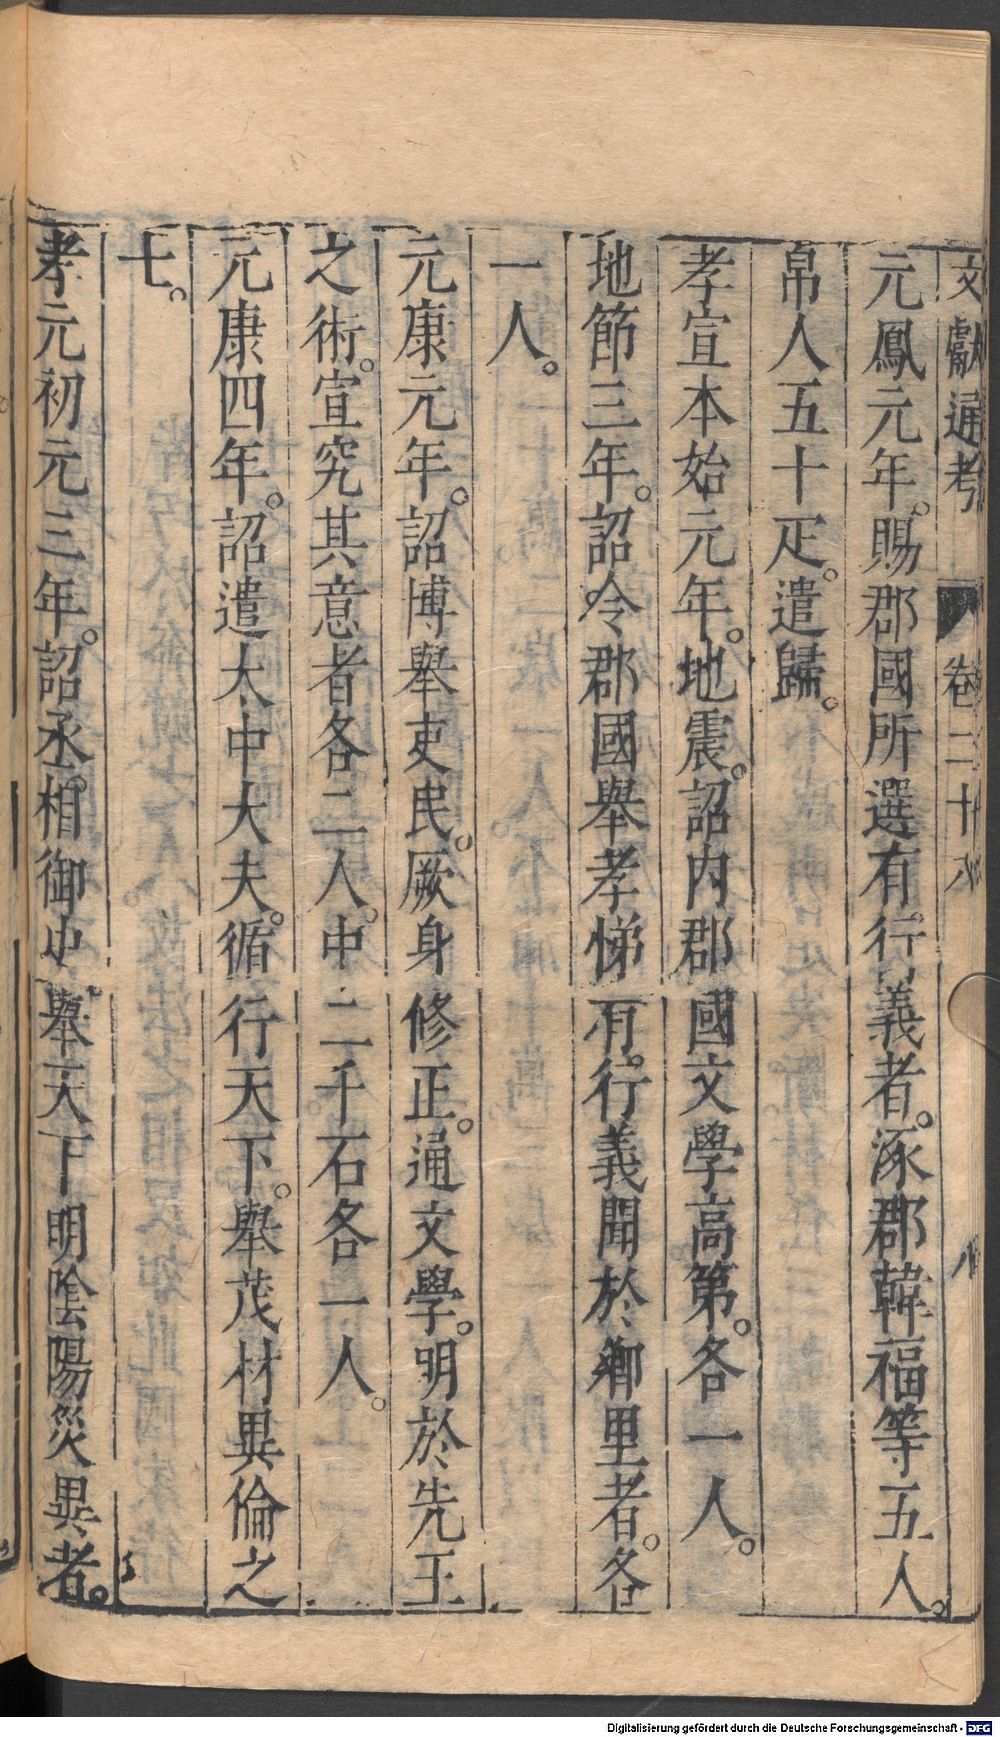 文獻通考 卷二十八 八
元鳳元年。賜郡國所選有行義者。涿郡韓福等五人。
帛人五十疋。遣歸。
孝宣本始元年。地震。詔內郡國文學高第。各一人。
地節三年。詔令郡國舉孝悌有行義聞於鄉里者。各
一人。
元康元年。詔博舉吏民。厥身修正。通文學。明於先王
之術。宣究其意者各二人。中二千石各一人。
元康四年。詔遣太中大夫。循行天下。舉茂材異倫之
士。
孝元初元三年。詔丞相御史。舉天下明陰陽災異者。
Digitalisierung gefördert durch die Deutsche Forschungsgemeinschaft - DFG